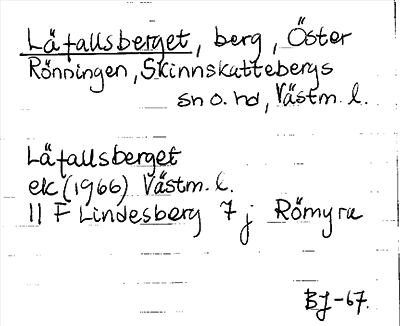 Läfallsberget, berg, Öster
Rönningen, Skinnskattebergs
sn o. hd, Västm. l.
Läfallsberget
ek (1966) Västm. l.
11 F Lindesberg 7 j Römyra
BJ-67.